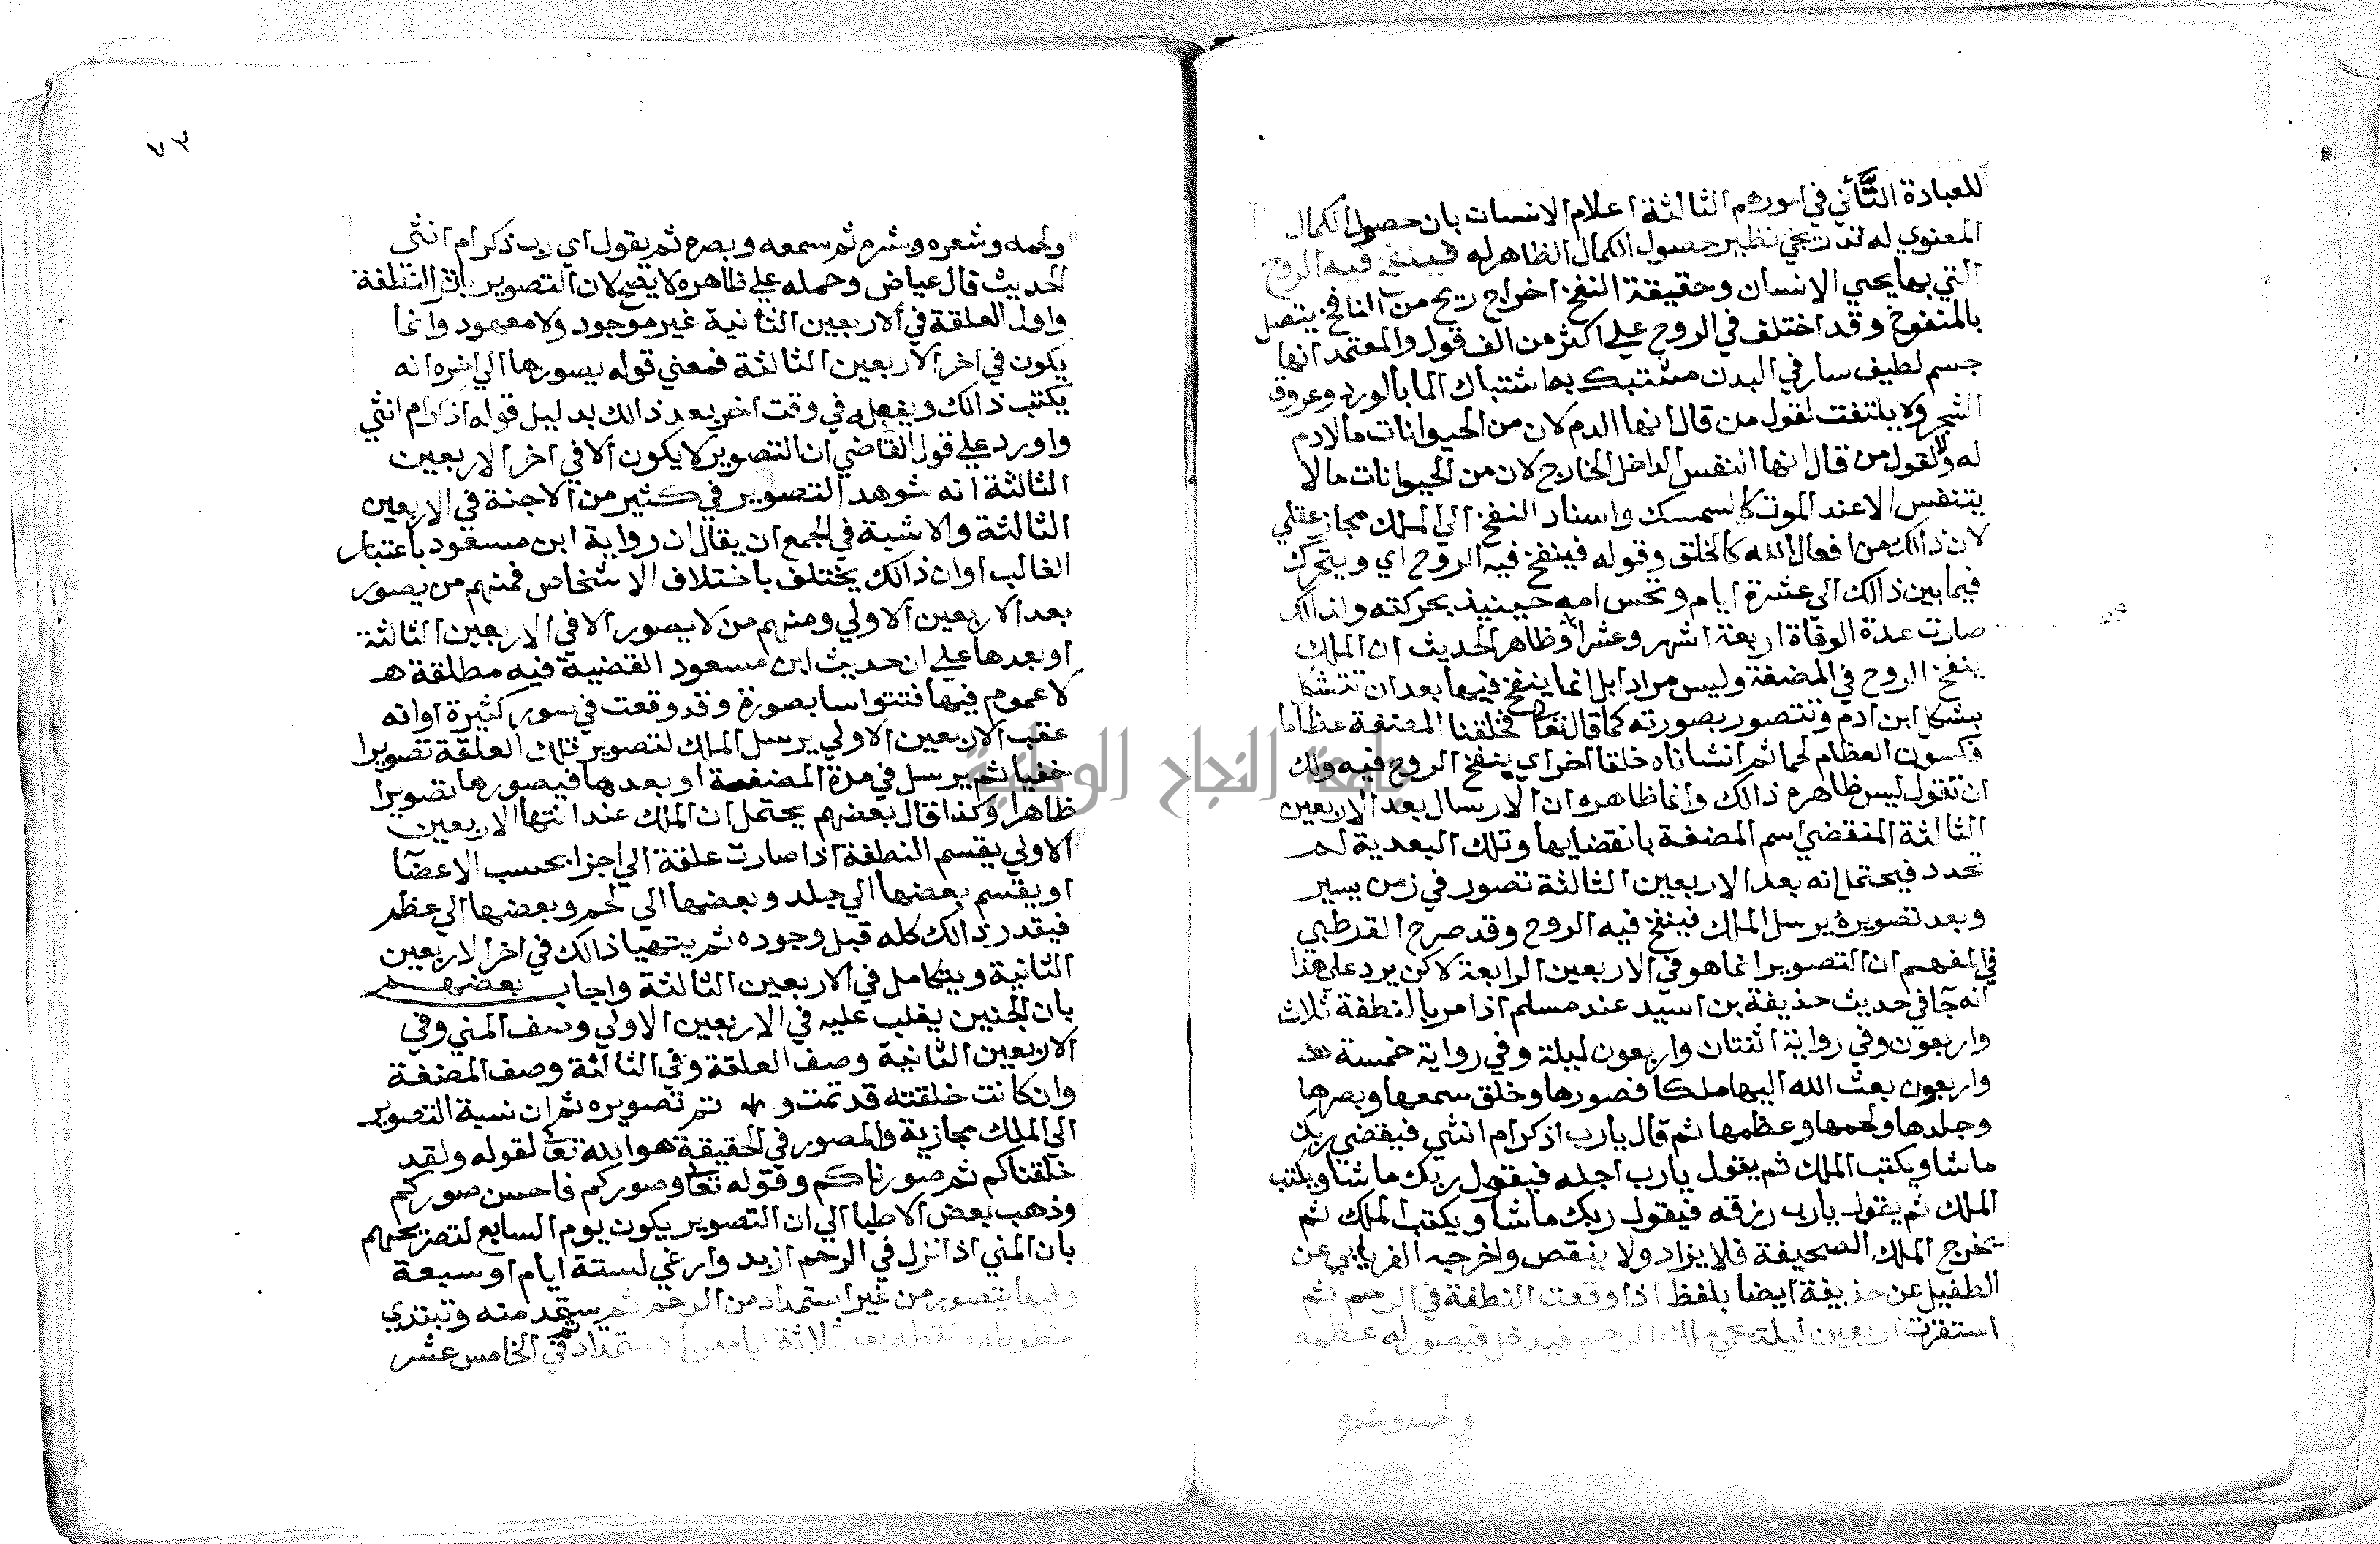 للعبادة التأني في امورهم الثالثة اعلام الانسان بان حصول الكمال
المعنوي له تدريجي نظير حصول الكمال الظاهر له فينفخ فيه الروح
التي بها يحيي الانسان وحقيقة النفخ اخراج ريح من النافخ يتصل
بالمنفوخ وقد اختلف في الروح علي اكثر من الف قول والمعتمد انها
جسم لطيف سار في البدن مشتبك به اشتباك الما بالورد وعروق
الشجر ولا يلتفت لقول من قال انها الدم لان من الحيوانات ما لا دم
له ولا لقول من قال انها النفس الداخل الخارج لان من الحيوانات ما لا
يتنفس الا عند الموت كالسمسك واسناد النفخ الي الملك مجاز عقلي
لان ذالك من افعال الله كالخلق وقوله فينفخ فيه الروح اي ويتحرك
فيما بين ذالك الي عشرة ايام وتحس امه حينيذ بحركته ولذالك
صارت عدة الوفاة اربعة اشهر وعشرا وظاهر الحديث ان الملك
ينفخ الروح في المضغة وليس مرادا بل انما ينفخ فيها بعد ان تتشكل
بشكل ابن ادم وتتصور بصورته كما قال تعا فخلقنا المضغة عظاما
فكسون العظام لحما ثم انشاناه خلقا اخر اي ينفخ الروح فيه ولك
ان تقول ليس ظاهره ذالك وانما ظاهره ان الارسال بعد الاربعين
الثالثة المنقضي اسم المضغة بانقضايها وتلك البعدية لم
تحدد فيحتمل انه بعد الاربعين الثالثة تصور في زمن يسير
وبعد تصويره يرسل الملك فينفخ فيه الروح وقد صرح القرطبي
في المفهم ان التصوير انما هو في الاربعين الرابعة لاكن يرد علي هذا
انه جآ في حديث حذيفة بن اسيد عند مسلم اذا مر بالنطفة ثلاث
واربعون وفي رواية اثنتان واربعون ليلة وفي رواية خمسة
واربعون بعث الله اليها ملكا فصورها وخلق سمعها وبصرها
وجلدها ولحمها وعظمها ثم قال يارب اذكر ام انثي فيقضي ربك
ماشا ويكتب الملك ثم يقول يارب اجله فيقول ربك ماشا ويكتب
الملك ثم يقول يارب رزقه فيقول ربك ماشا ويكتب الملك ثم
يخرج الملك الصحيفة فلا يزاد ولا ينقص واخرجه الفريابي عن
الطفيل عن حذيفة ايضا بلفظ اذا وقعت النطفة في الرحم ثم
استقرت اربعين ليلة يجي ملك الرحم فيدخل فيصور له عظمه
ولحمه وشعره
٧٣
ولحمه وشعره وبشره ثم سمعه وبصره ثم يقول اي رب ذكر ام انثي
الحديث قال عياض وحمله علي ظاهره لا يصح لان التصوير باثر النطفة
واول العلقة في الاربعين الثانية غير موجود ولا معهود وانما
يكون في اخر الاربعين الثالثة فمعني قوله يصورها الي اخره انه
يكتب ذالك ويفعله في وقت اخر بعد ذالك بدليل قوله اذكر ام انثي
واورد علي قول القاضي ان التصوير لا يكون الا في اخر الاربعين
الثالثة انه شوهد التصوير في كثير من الاجنة في الاربعين
الثالثة والاشبة في الجمع ان يقال ان رواية ابن مسعود باعتبار
الغالب او ان ذالك يختلف باختلاف الاشخاص فمنهم من يصور
بعد الاربعين الاولي ومنهم من لا يصور الا في الاربعين الثالثة
او بعدها علي ان حديث ابن مسعود القضية فيه مطلقة
لا عموم فيها وقد وقعت في صور كثيرة او انه
عقب الاربعين الاولي يرسل الملك لتصوير تلك العلقة تصويرا
خفيا ثم يرسل في مدة المضغة او بعدها فيصورها تصويرا
ظاهرا وكذا قال بعضهم يحتمل ان الملك عند انتها الاربعين
الاولي يقسم النطفة اذا صارت علقة الي اجزا بحسب الاعضآ
او يقسم بعضها الي جلد وبعضها الي لحم وبعضها الي عظم
فيقدر ذالك كله قبل وجوده ثم يتهيا ذالك في اخر الاربعين
الثانية ويتكامل في الاربعين الثالثة واجاب بعضهم
بان الجنين يغلب عليه في الاربعين الاولي وصف المني وفي
الاربعين الثانية وصف العلقة وفي الثالثة وصف المضغة
وان كانت خلقته قد تمت و تم تصويره ثم ان نسبة التصوير
الي الملك مجازية والمصور في الحقيقة هو الله تعا لقوله ولقد
خلقناكم ثم صورناكم وقوله تعا وصوركم فاحسن صوركم
وذهب بعض الاطبا الي ان التصوير يكون يوم السابع لتصريحهم
بان المني اذا نزل في الرحم ازبد وارغي لستة ايام او سبعة
وفيها يتصور من غير استمداد من الرحم ثم يستمد منه وتبتدي
خطوطه ونقطه بعد ثلاثة ايام من الاستمداد ثم في الخامس عشر
جامعة النجاح الوطنية